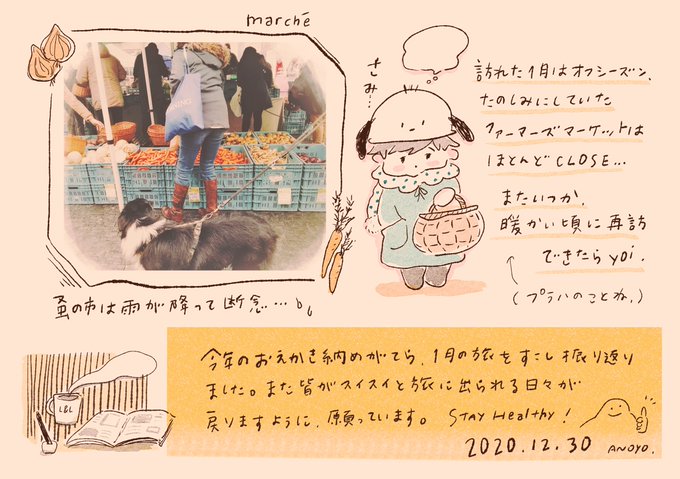 marché
さみ…
訪れた1月はオフシーズン、
たのしみにしていた
ファーマーズマーケットは
ほとんどCLOSE…
またいつか、
暖かい頃に再訪
できたらyoi.
(プラハのことね。)
蚤の市は雨が降って断念…
L&L
今年のおえかき納めがてら、1月の旅をすこし振り返り
ました。また皆がスイスイと旅に出られる日々が
戻りますように、願っています。 STAY Healthy!
2020.12.30 ANOYO.